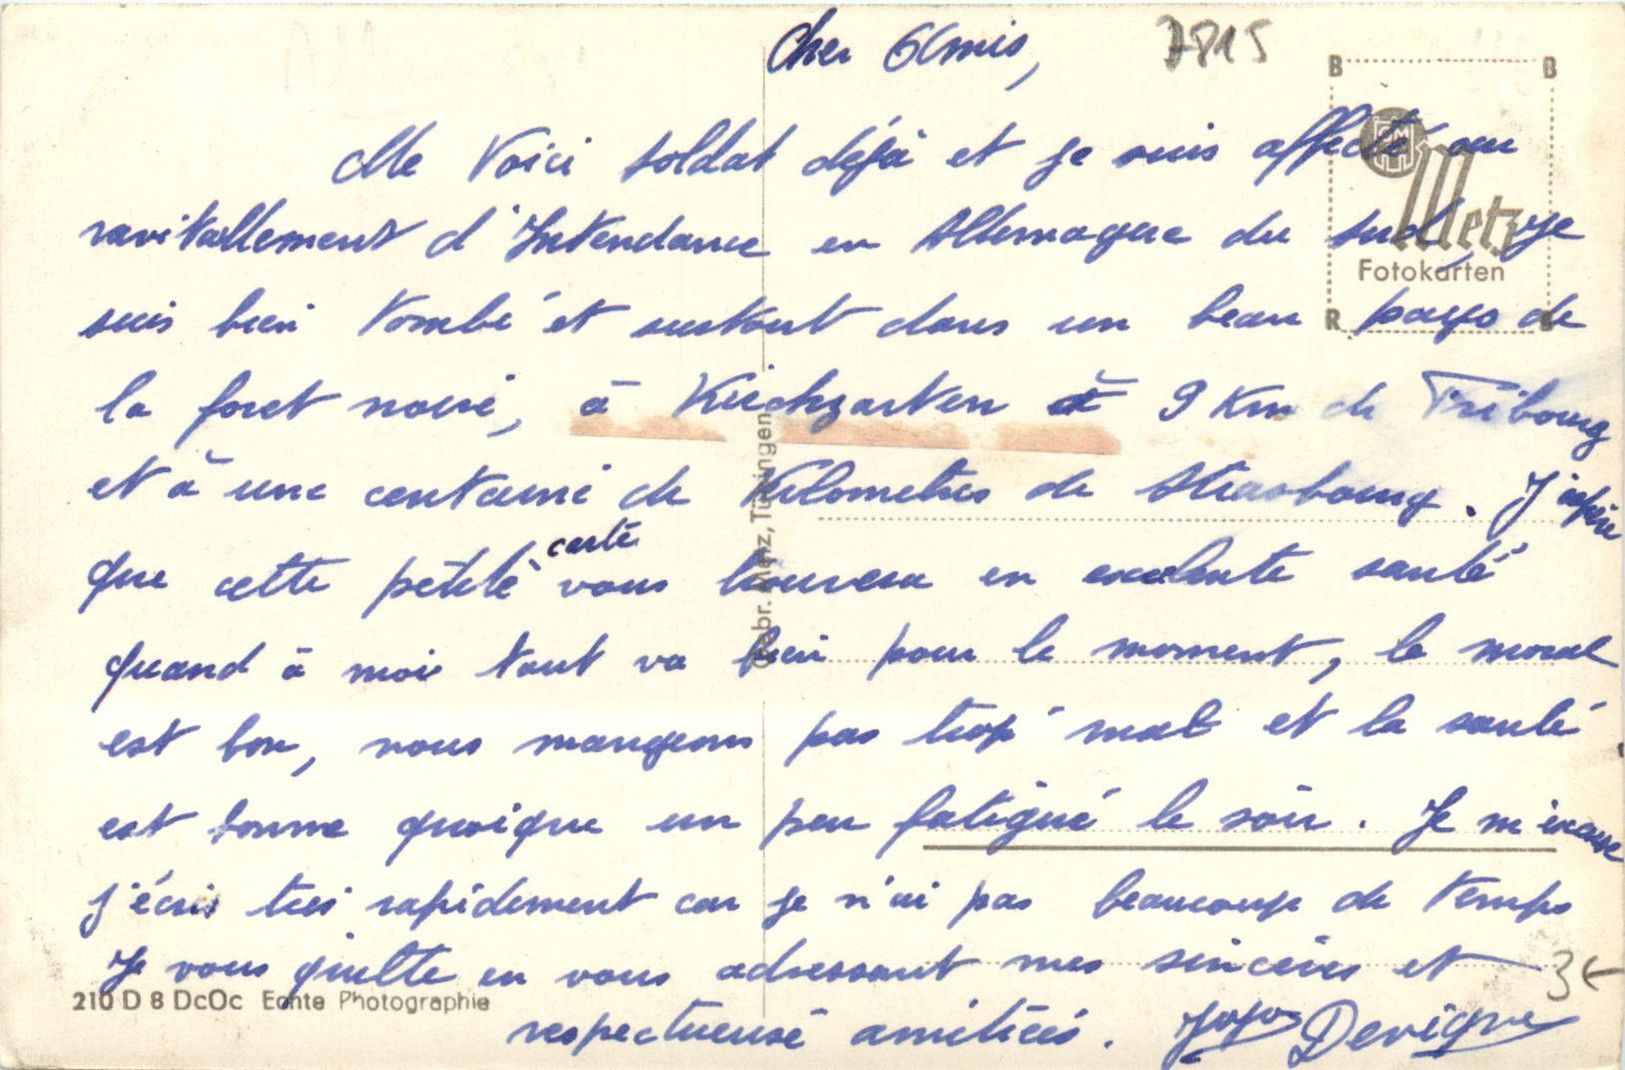 Cher Amis,
7815
B B
Me Voici soldat déjà et je suis affecté au
ravitallement d'Intendance en Allemagne du sud, je
Metz
Fotokarten
suis bien tombé et surtout dans un beau pays de
R
la foret noire, à Kirchzarten à 9 Km de Fribourg
et à une centaine de Kilometres de Strasbourg. J'espère
carte
que cette petite vous trouvera en excelente santé
quand à moi tout va bien pour le moment, le moral
est bon, nous mangeons pas trop mal et la santé
est bonne quoique un peu fatigué le soir. Je m'excuse
j'écris très rapidement car je n'ai pas beaucoup de temps
Je vous quitte en vous adressant mes sincères et
3€
210 D 8 DcOc Echte Photographie
respectueuse amitiés. Jojo Devigne
Gebr. Metz, Tübingen